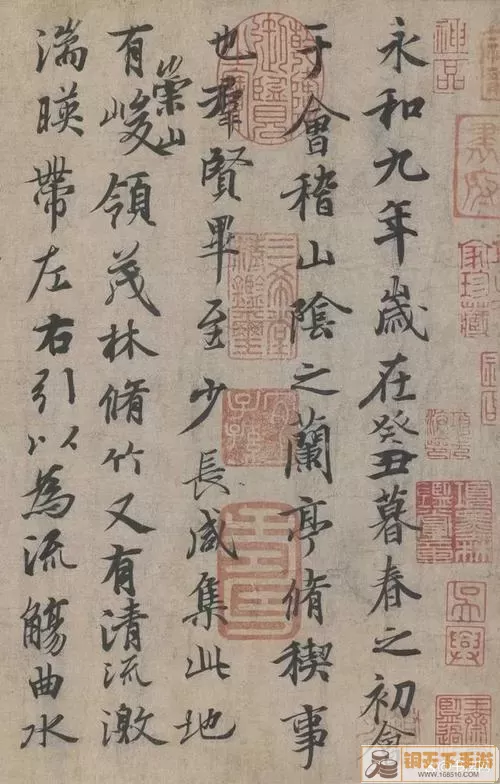 永和九年歲在癸丑暮春之初會
于會稽山陰之蘭亭脩稧事
也羣賢畢至少長咸集此地
有崇山峻領茂林脩竹又有清流激
湍暎帶左右引以為流觴曲水
神品
三希堂精鑑璽
宜子孫
天下手游
www.168510.com